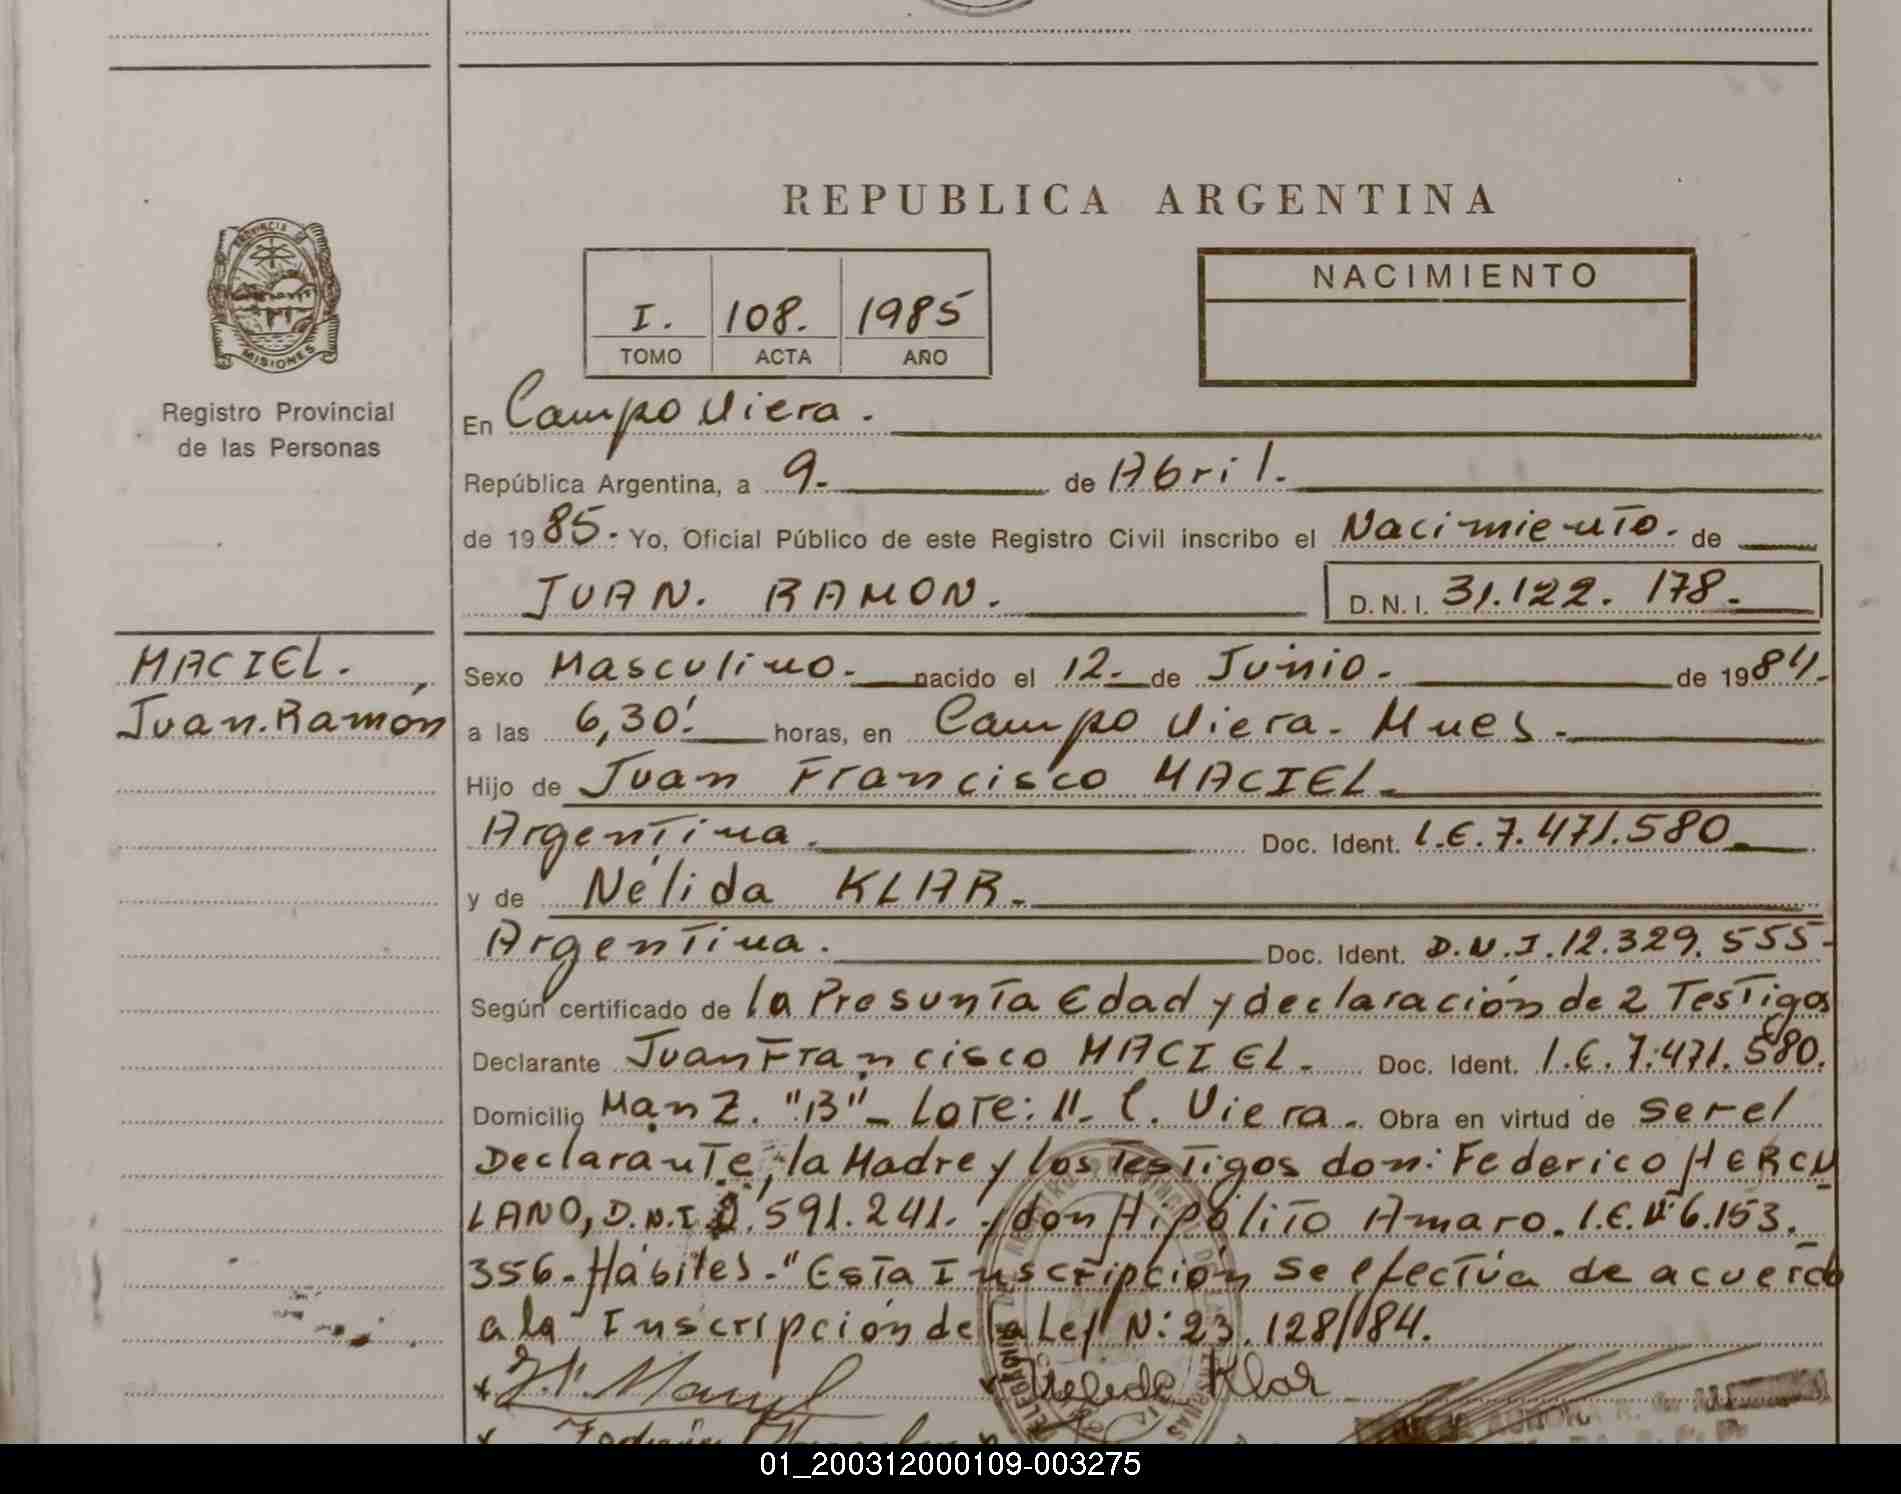 REPUBLICA ARGENTINA
PROVINCIA DE
MISIONES
Registro Provincial
de las Personas
I. 108. 1985
TOMO ACTA AÑO
NACIMIENTO
En Campo Viera.
República Argentina, a 9.- de Abril.
de 1985.- Yo, Oficial Público de este Registro Civil inscribo el Nacimiento. de
JUAN. RAMON. D.N.I. 31.122.178.-
MACIEL.,
Juan.Ramón
Sexo Masculino.- nacido el 12.- de Junio.- de 1984.-
a las 6,30'.- horas, en Campo Viera.- Mnes.-
Hijo de Juan Francisco MACIEL.-
Argentina. Doc. Ident. L.E.7.471.580.-
y de Nélida KLAR.-
Argentina. Doc. Ident. D.N.I.12.329.555-
Según certificado de la Presunta Edad y declaración de 2 Testigos
Declarante Juan Francisco MACIEL.- Doc. Ident. L.E.7.471.580.
Domicilio Manz. "B"- Lote: 11- C. Viera.- Obra en virtud de ser el
Declarante, la Madre y los Testigos don: Federico HERCU
LANO, D.N.I. 591.241. y don Hipólito Amaro. L.E.Nº6.153.
356.- Hábiles.- "Esta Inscripción se efectúa de acuerdo
a la Inscripción de la Ley N: 23.128//84.
Nelida Klar
01_200312000109-003275